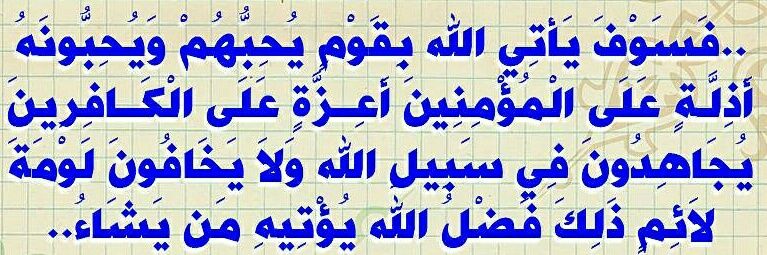 ..فَسَوْفَ يَأتِي الله بِقَوْمٍ يُحِبُّهُمْ وَيُحِبُّونَهُ
أذِلَّةٍ عَلَى الْمُؤْمِنِينَ أعِـزَّةٍ عَلَى الْكَـافِرِينَ
يُجَاهِدُونَ فِي سَبِيلِ الله وَلاَ يَخَافُونَ لَوْمَةَ
لاَئِمٍ ذَلِكَ فَضْلُ الله يُؤْتِيهِ مَن يَشَاءُ..